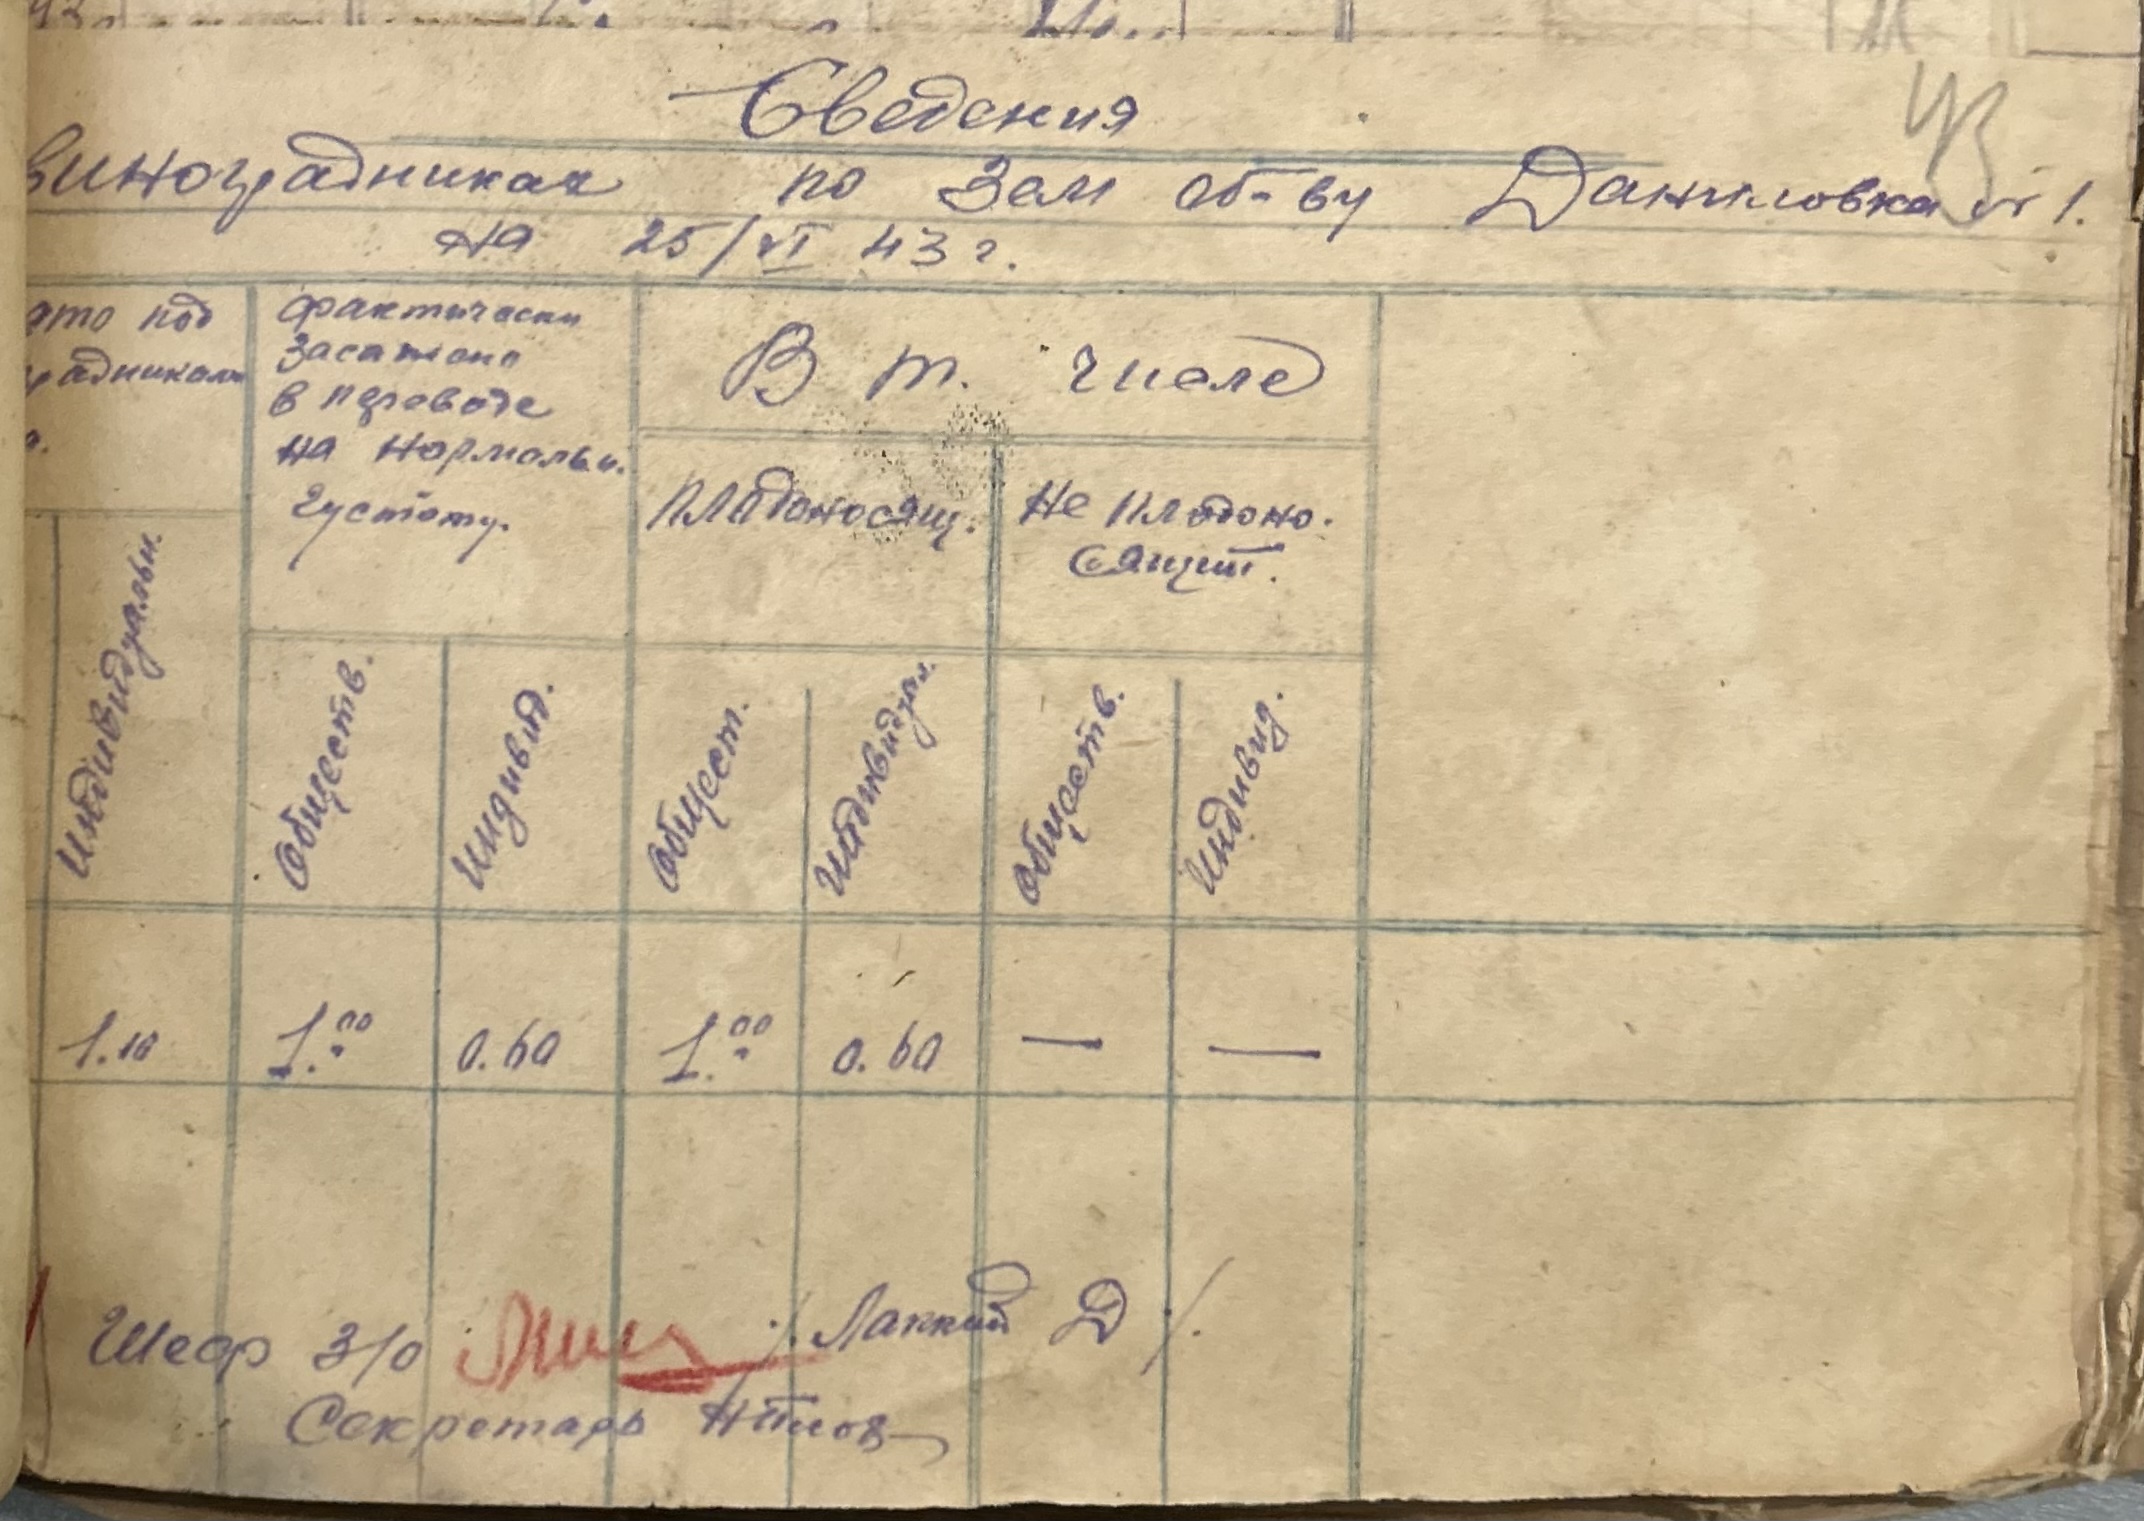 Сведения
виноградниках по Зем об-ву Даниловка № 1.
на 25/VI 43 г.
ято под
радникам
а.
фактически
засажено
в переводе
на нормальн.
густоту.
В т. числе
Плодоносящ.
Не плодоно.
сящит.
Индивидуальн.
Обществ.
Индивид.
Общест.
Индивидуал.
Обществ.
Индивид.
1.10 1.00 0.60 1.00 0.60 — —
Шеф З/О /. Лаккий Д /.
Секретарь